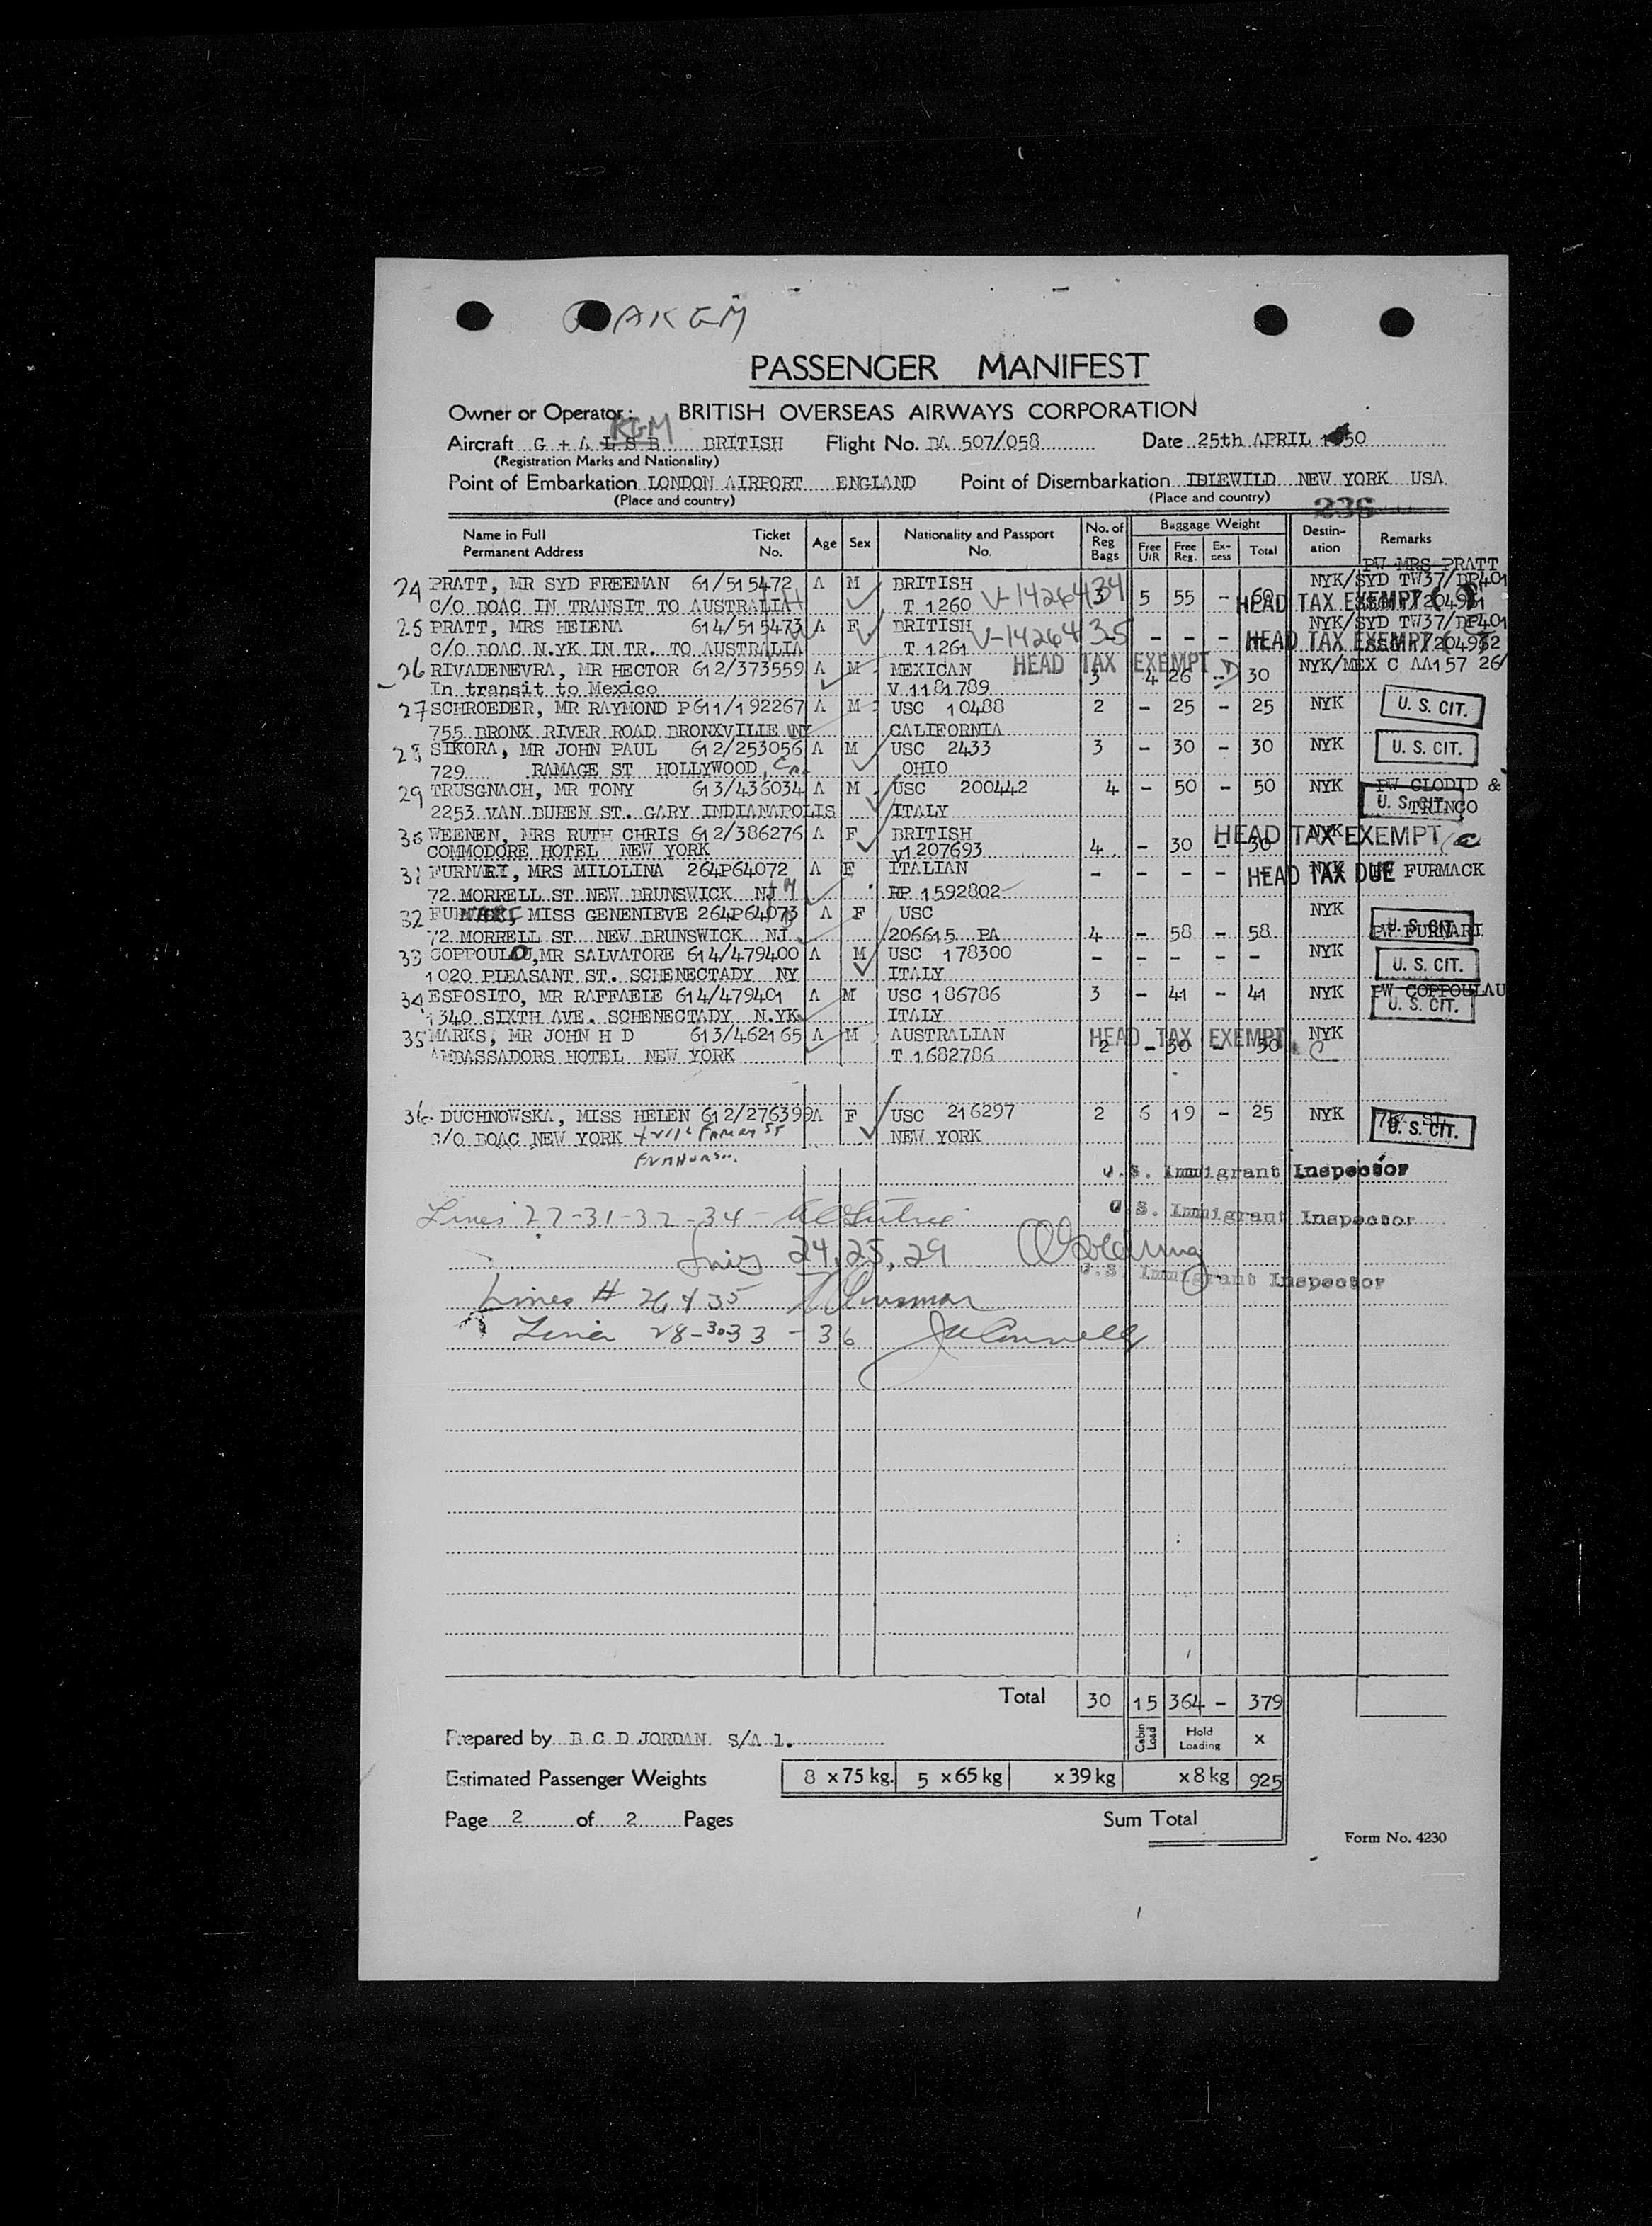 AKGM
PASSENGER MANIFEST
Owner or Operator: BRITISH OVERSEAS AIRWAYS CORPORATION
KGM
Aircraft G + A L S B BRITISH Flight No. BA 507/058 Date 25th APRIL 1950
(Registration Marks and Nationality)
Point of Embarkation LONDON AIRPORT ENGLAND Point of Disembarkation IDLEWILD NEW YORK USA
(Place and country) (Place and country)
236
Name in Full Permanent Address Ticket No. Age Sex Nationality and Passport No. No. of Reg Bags Baggage Weight Free U/R Free Reg. Excess Total Destination Remarks
PW MRS PRATT
24 PRATT, MR SYD FREEMAN 61/515472 A M BRITISH V-1426434 3 5 55 - 60 NYK/SYD TW37/BP401
C/O BOAC IN TRANSIT TO AUSTRALIA T 1260 HEAD TAX EXEMPT
25 PRATT, MRS HELENA 614/515473 A F BRITISH V-1426435 - - - - - NYK/SYD TW37/BP401
C/O BOAC N.YK IN TR. TO AUSTRALIA T 1261 HEAD TAX EXEMPT
26 RIVADENEVRA, MR HECTOR 612/373559 A M MEXICAN HEAD TAX EXEMPT 3 4 26 - 30 NYK/MEX C AA157 26/
In transit to Mexico V 1181789
27 SCHROEDER, MR RAYMOND P 611/192267 A M USC 10488 2 - 25 - 25 NYK U. S. CIT.
755 BRONX RIVER ROAD BRONXVILLE NY CALIFORNIA
28 SIKORA, MR JOHN PAUL 612/253056 A M USC 2433 3 - 30 - 30 NYK U. S. CIT.
729 RAMAGE ST HOLLYWOOD, Cal OHIO
29 TRUSGNACH, MR TONY 613/436034 A M USC 200442 4 - 50 - 50 NYK PW CLODID &
2253 VAN BUREN ST. GARY INDIANAPOLIS ITALY TRINCO U. S. CIT.
30 WEENEN, MRS RUTH CHRIS 612/386276 A F BRITISH 4 - 30 - 30 NYK HEAD TAX EXEMPT
COMMODORE HOTEL NEW YORK V1207693
31 FURNARI, MRS MILOLINA 264P64072 A F ITALIAN - - - - - NYK HEAD TAX DUE FURMACK
72 MORRELL ST NEW BRUNSWICK NJ RP 1592802
32 FURNARI, MISS GENENIEVE 264P64073 A F USC NYK
72 MORRELL ST NEW BRUNSWICK NJ 206615 PA 4 - 58 - 58 PW FURNARI U. S. CIT.
33 COPPOULO, MR SALVATORE 614/479400 A M USC 178300 - - - - - NYK U. S. CIT.
1020 PLEASANT ST. SCHENECTADY NY ITALY
34 ESPOSITO, MR RAFFAELE 614/479401 A M USC 186786 3 - 41 - 41 NYK PW COPPOULAU
1340 SIXTH AVE. SCHENECTADY N.YK ITALY U. S. CIT.
35 MARKS, MR JOHN H D 613/462165 A M AUSTRALIAN HEAD TAX EXEMPT 2 - 30 - 30 NYK
AMBASSADORS HOTEL NEW YORK T 1682786
36 DUCHNOWSKA, MISS HELEN 612/276399 A F USC 216297 2 6 19 - 25 NYK
C/O BOAC NEW YORK NEW YORK U. S. CIT.
U.S. Immigrant Inspector
Lines 27-31-32-34 - U.S. Immigrant Inspector
Lines 24, 25, 29
U.S. Immigrant Inspector
Lines # 26 & 35
Lines 28-30-33-36
Total 30 15 364 - 379
Prepared by B C D JORDAN S/A 1. Cabin Load Hold Loading x
Estimated Passenger Weights 8 x 75 kg. 5 x 65 kg x 39 kg x 8 kg 925
Page 2 of 2 Pages Sum Total
Form No. 4230